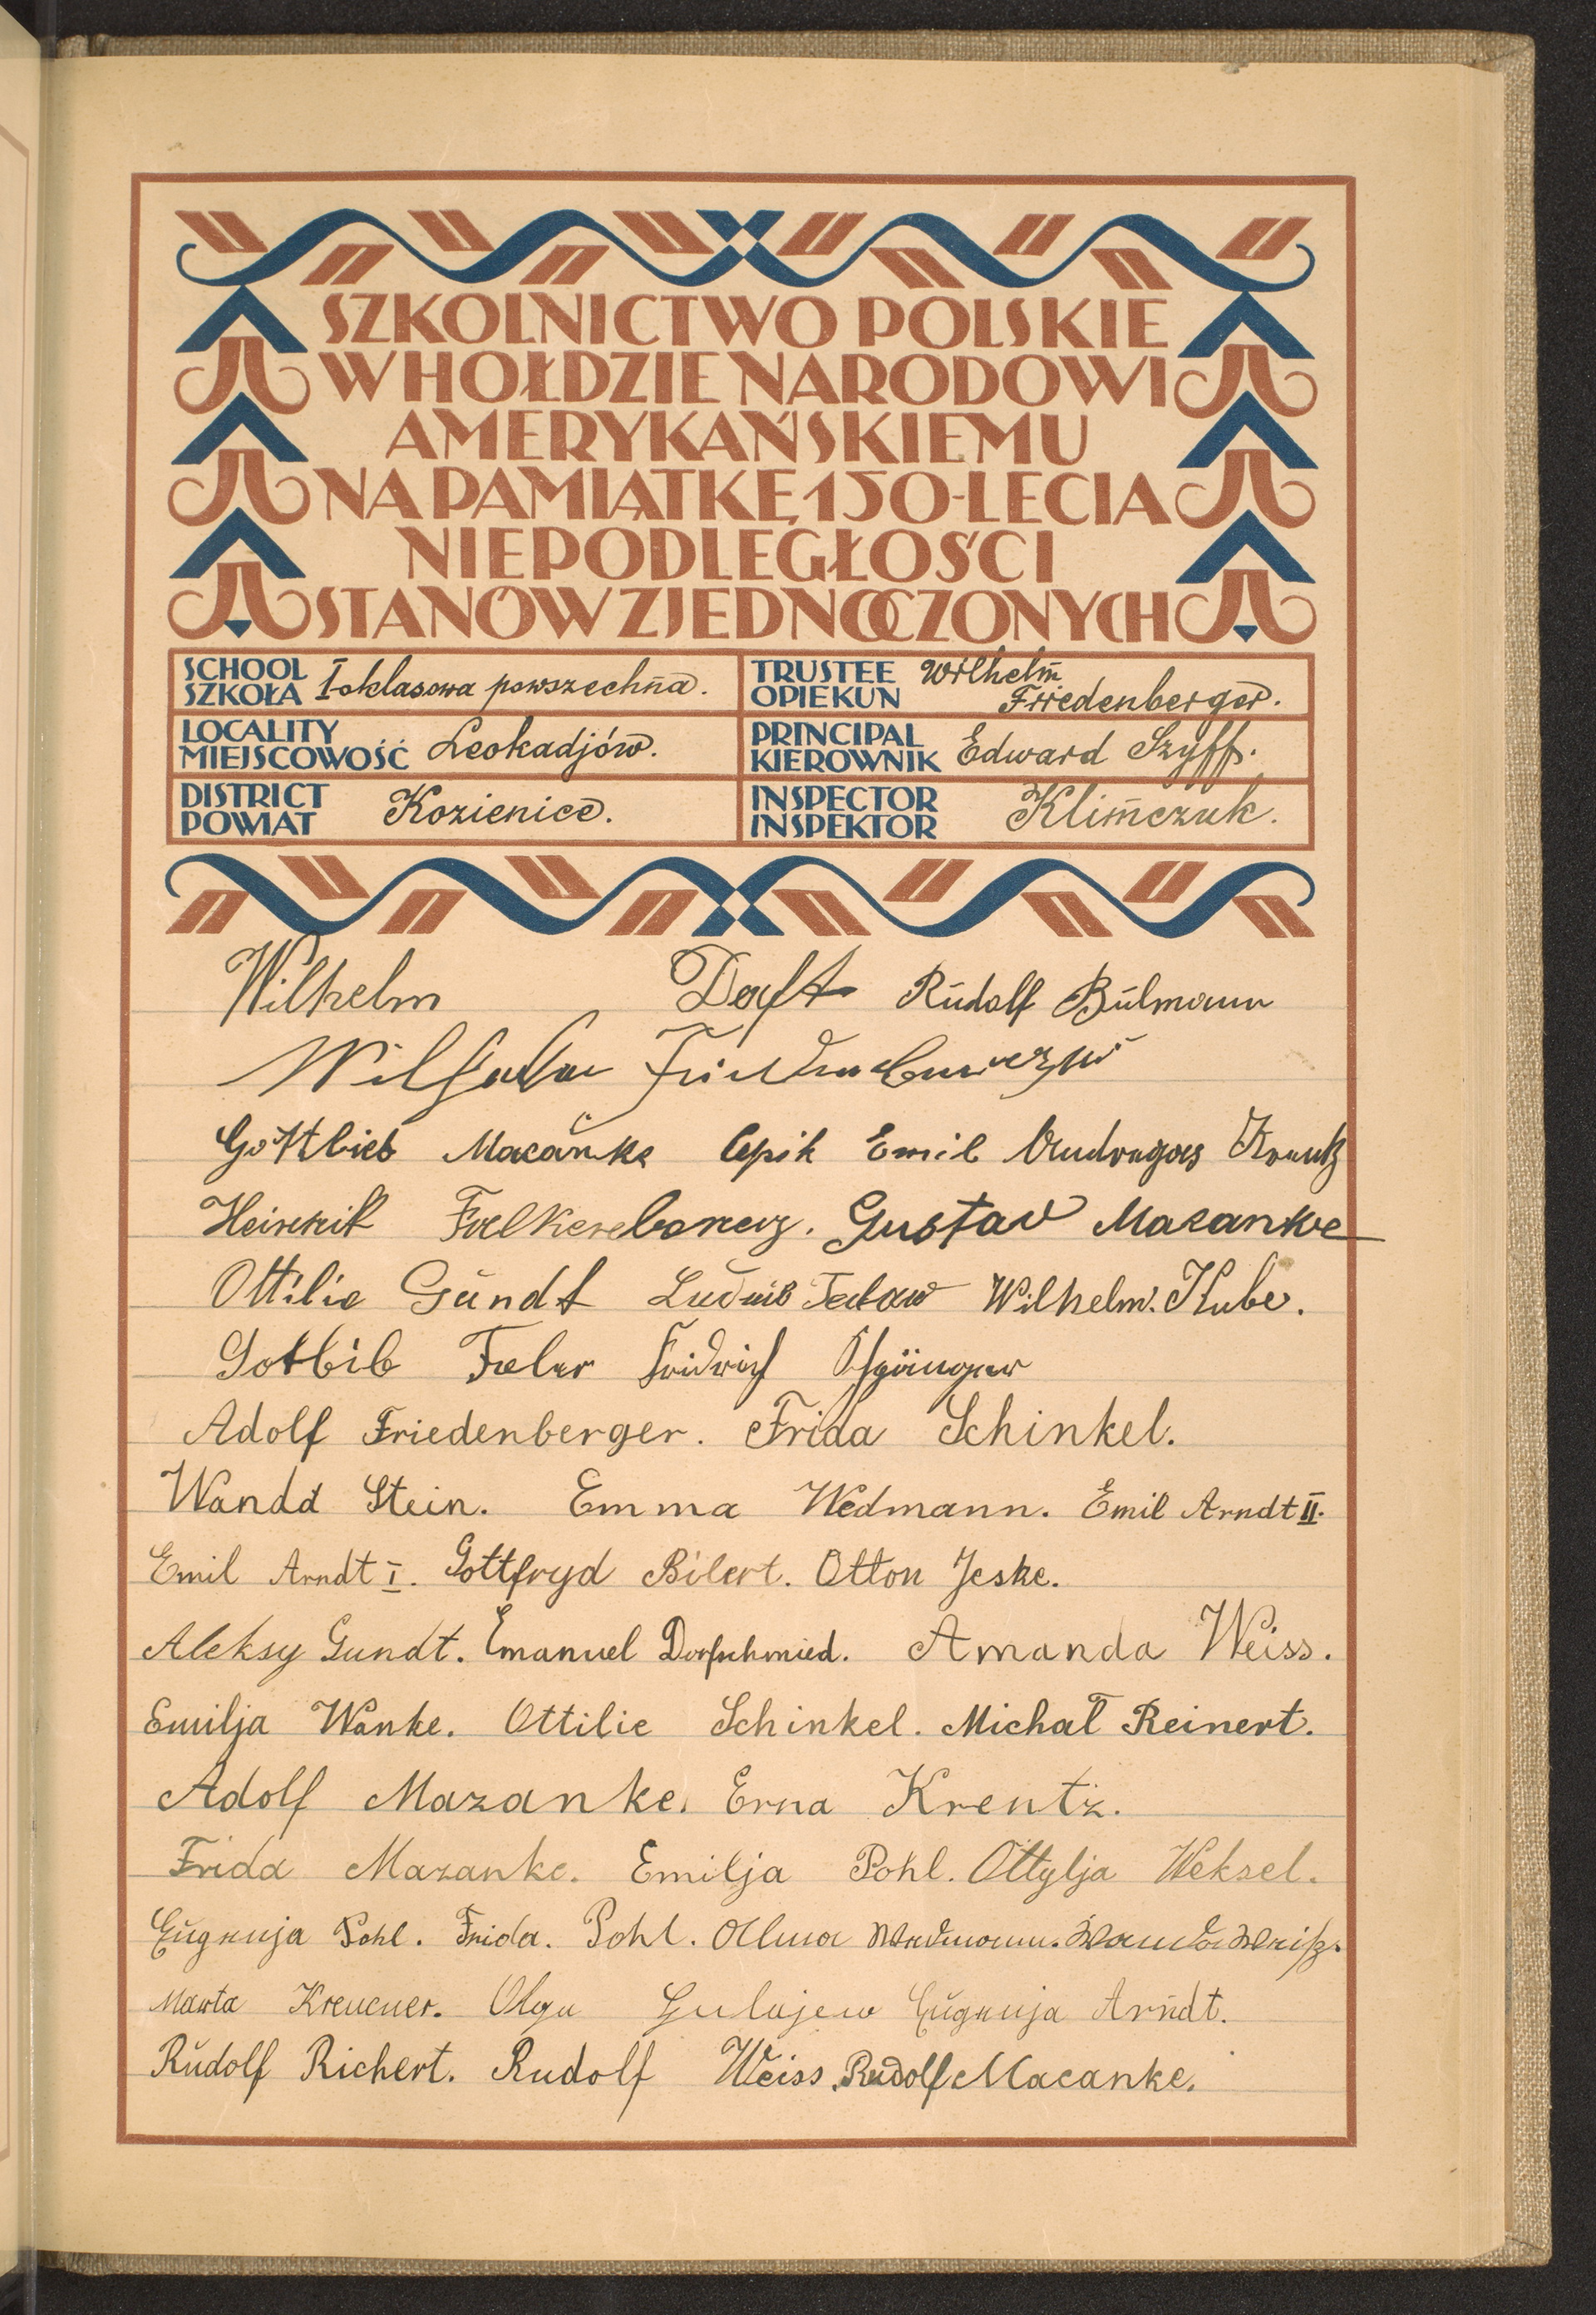 SZKOLNICTWO POLSKIE
W HOŁDZIE NARODOWI
AMERYKAŃSKIEMU
NA PAMIĄTKĘ 150-LECIA
NIEPODLEGŁOŚCI
STANÓW ZJEDNOCZONYCH
SCHOOL SZKOŁA I-oklasowa powszechna.
TRUSTEE OPIEKUN Wilhelm Friedenberger.
LOCALITY MIEJSCOWOŚĆ Leokadjów.
PRINCIPAL KIEROWNIK Edward Szyff.
DISTRICT POWIAT Kozienice.
INSPECTOR INSPEKTOR Klimczuk.
Wilhelm Rudolf Bulmann
Gottlieb Macanke Emil
Gustav Macanke
Ottilie Gundt Wilhelm. Kube.
Adolf Friedenberger. Frida Schinkel.
Wanda Stein. Emma Wedmann. Emil Arndt II.
Emil Arndt I. Gottfryd Bilert. Otton Jeske.
Aleksy Gundt. Emanuel Dorfschmied. Amanda Weiss.
Emilja Wanke. Ottilie Schinkel. Michał Reinert.
Adolf Mazanke. Erna Krentz.
Frida Mazanke. Emilja Pohl. Ottylja Weksel.
Eugenja Pohl. Frida. Pohl. Olma Wedmann. Wanda Weiß.
Marta Kreucner. Olga Gulajew Eugenja Arndt.
Rudolf Richert. Rudolf Weiss. Rudolf Macanke.